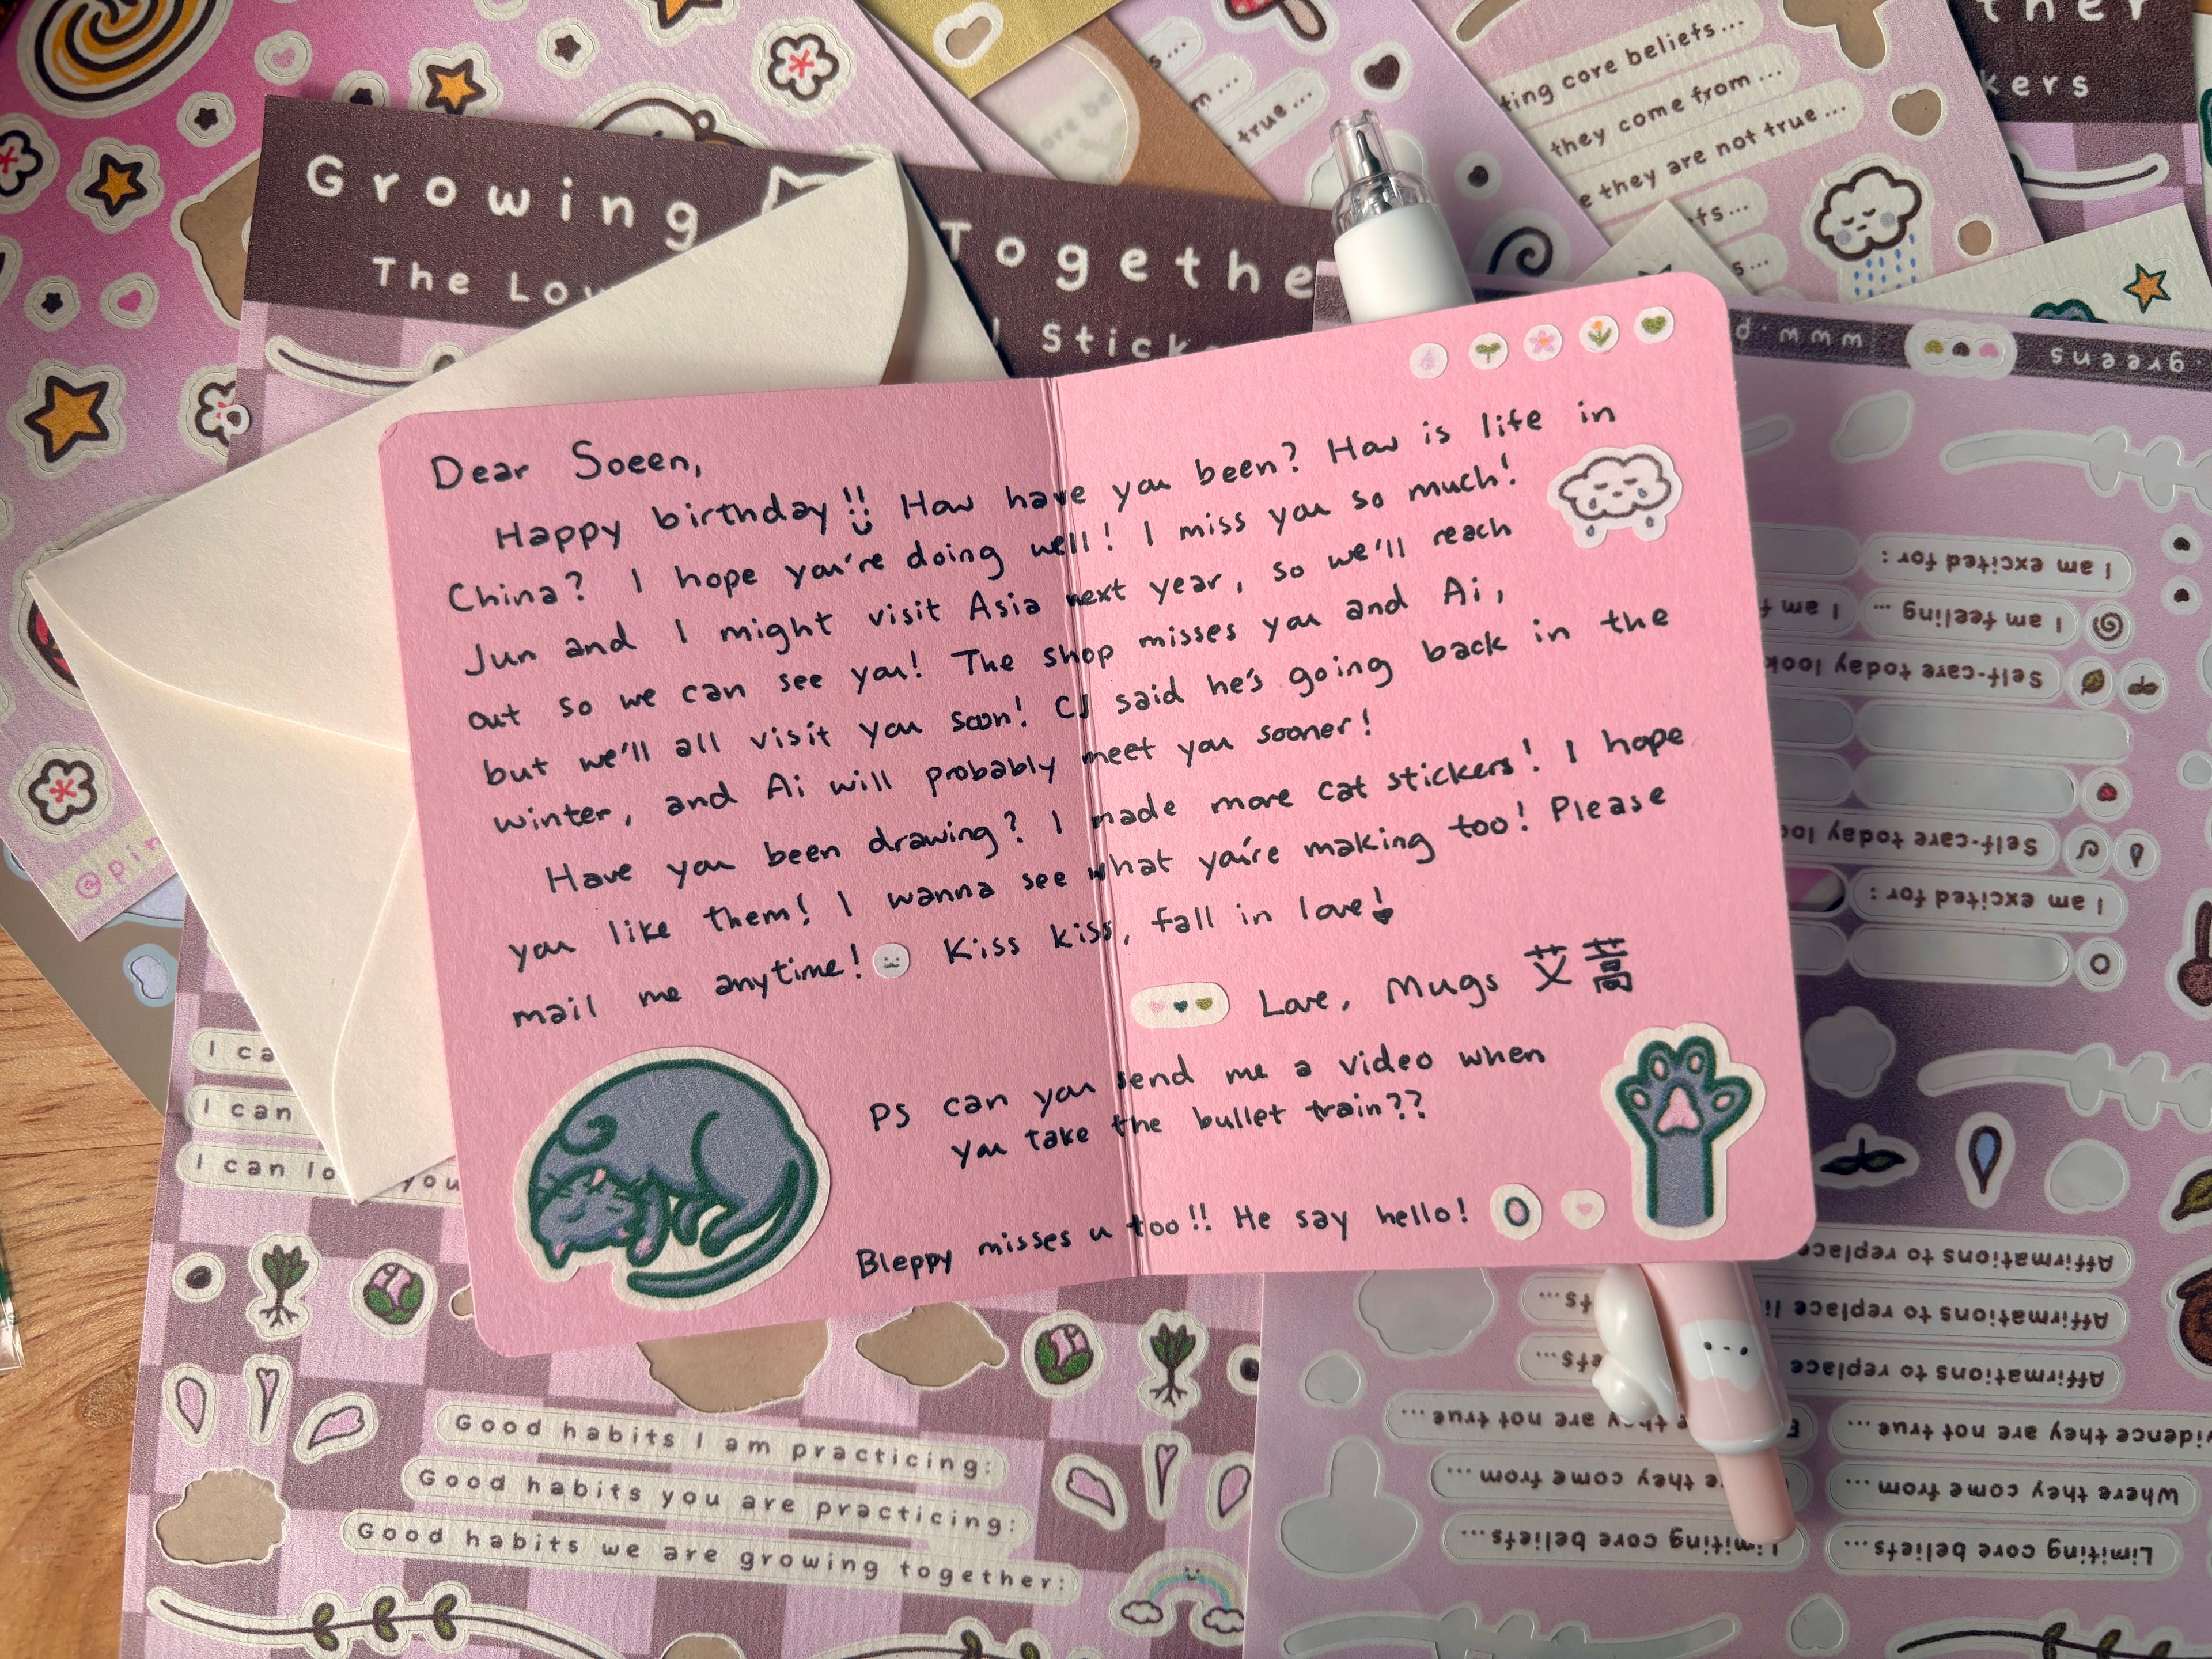 Growing Together
The Lov
l Stick
ther
kers
ting core beliefs...
they come from ...
e they are not true ...
fs...
s...
s...
m...
true...
Dear Soeen,
Happy birthday!! How have you been? How is life in
China? I hope you're doing well! I miss you so much!
Jun and I might visit Asia next year, so we'll reach
out so we can see you! The shop misses you and Ai,
but we'll all visit you soon! CJ said he's going back in the
winter, and Ai will probably meet you sooner!
Have you been drawing? I made more cat stickers! I hope
you like them! I wanna see what you're making too! Please
mail me anytime! Kiss kiss, fall in love!
Love, Mugs 艾蒿
PS can you send me a video when
you take the bullet train??
Bleppy misses u too!! He say hello!
@pin
I ca
I can
I can lo you
Good habits I am practicing:
Good habits you are practicing:
Good habits we are growing together:
greens
www.p
I am excited for:
I am feeling ...
I am f
Self-care today look
Self-care today loo
I am excited for:
Affirmations to replace
Affirmations to replace li
Affirmations to replace
efs...
efs...
vidence they are not true...
E they are not true...
Where they come from...
re they come from...
Limiting core beliefs...
Limiting core beliefs...